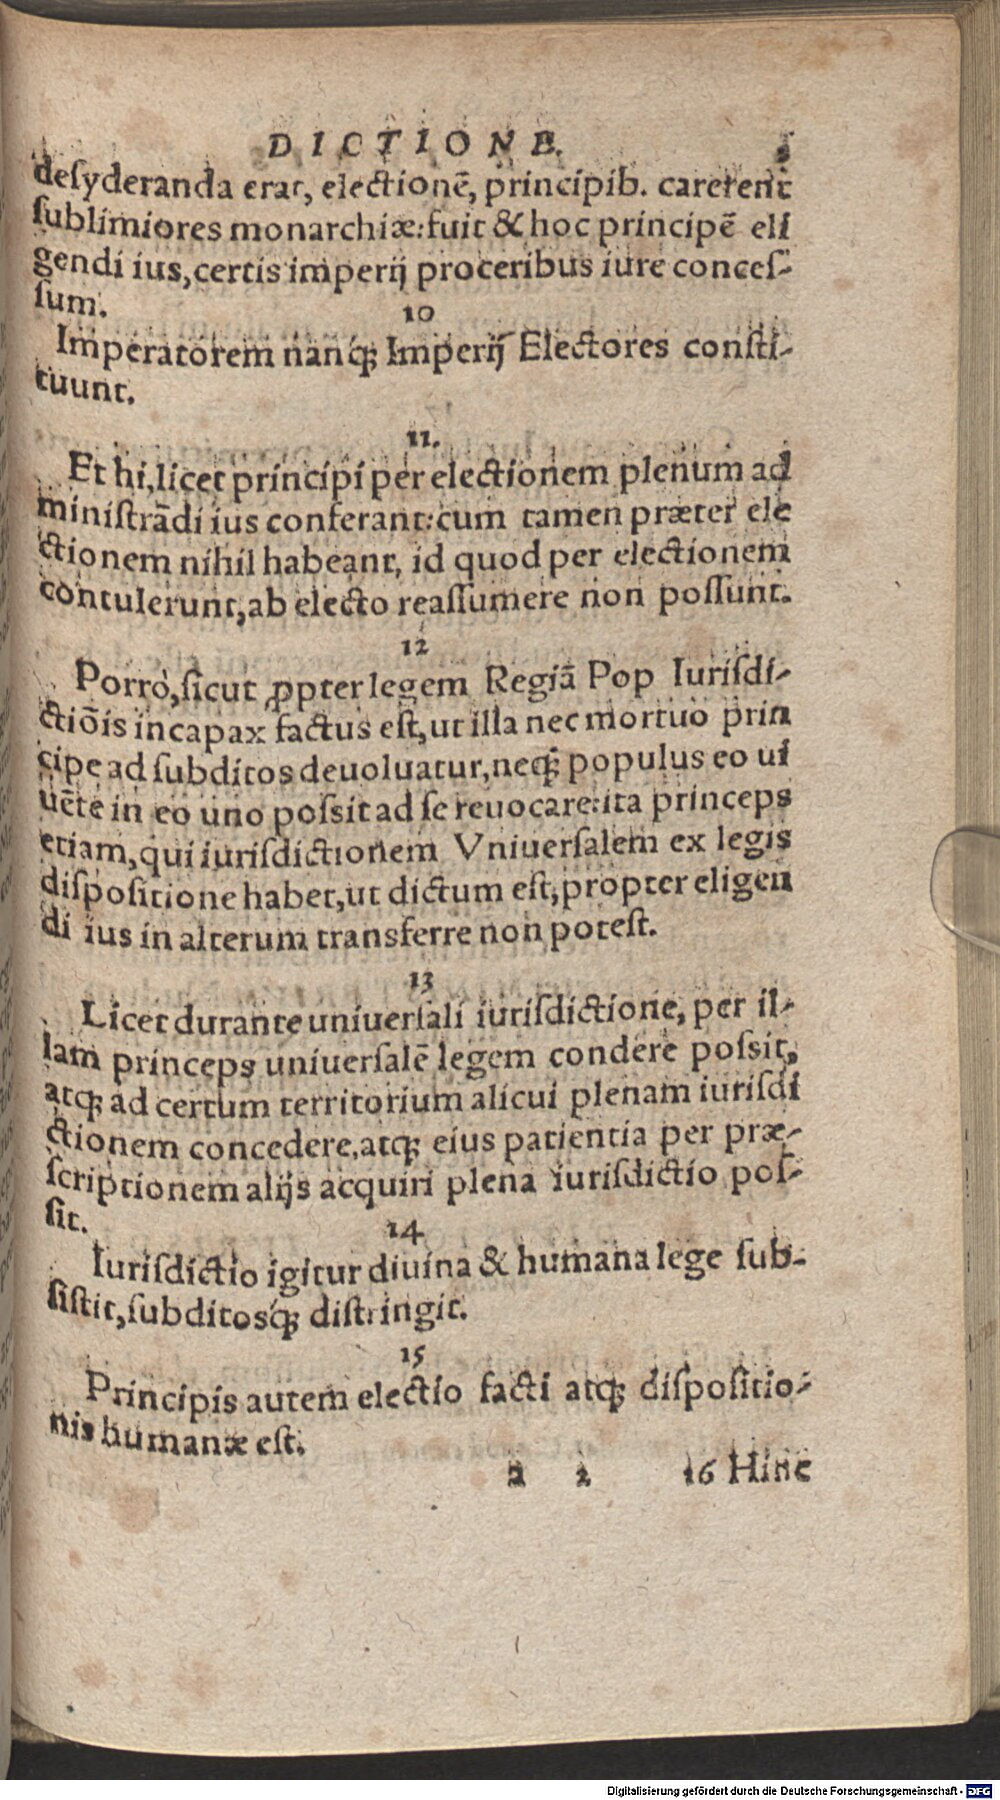 DICTIONE.
desyderanda erat, electionē, principib. carerent
sublimiores monarchiæ: fuit & hoc principē eli
gendi ius, certis imperij proceribus iure conces-
sum.
10
Imperatorem nanq; Imperij Electores consti-
tuunt.
11.
Et hi, licet principi per electionem plenum ad
ministrādi ius conferant: cum tamen præter ele
ctionem nihil habeant, id quod per electionem
contulerunt, ab electo reassumere non possunt.
12
Porrò, sicut ꝓpter legem Regiā Pop Iurisdi-
ctiōis incapax factus est, ut illa nec mortuo prin
cipe ad subditos deuoluatur, neq; populus eo ui
uēte in eo uno possit ad se reuocare: ita princeps
etiam, qui iurisdictionem Vniuersalem ex legis
dispositione habet, ut dictum est, propter eligen
di ius in alterum transferre non potest.
13
Licet durante uniuersali iurisdictione, per il-
lam princeps uniuersalē legem condere possit,
atq; ad certum territorium alicui plenam iurisdi
ctionem concedere, atq; eius patientia per præ-
scriptionem alijs acquiri plena iurisdictio pos-
sit.
14
Iurisdictio igitur diuina & humana lege sub-
sistit, subditosq́; distringit.
15
Principis autem electio facti atq; dispositio-
nis humanæ est.
a 2 16 Hinc
Digitalisierung gefördert durch die Deutsche Forschungsgemeinschaft - DFG